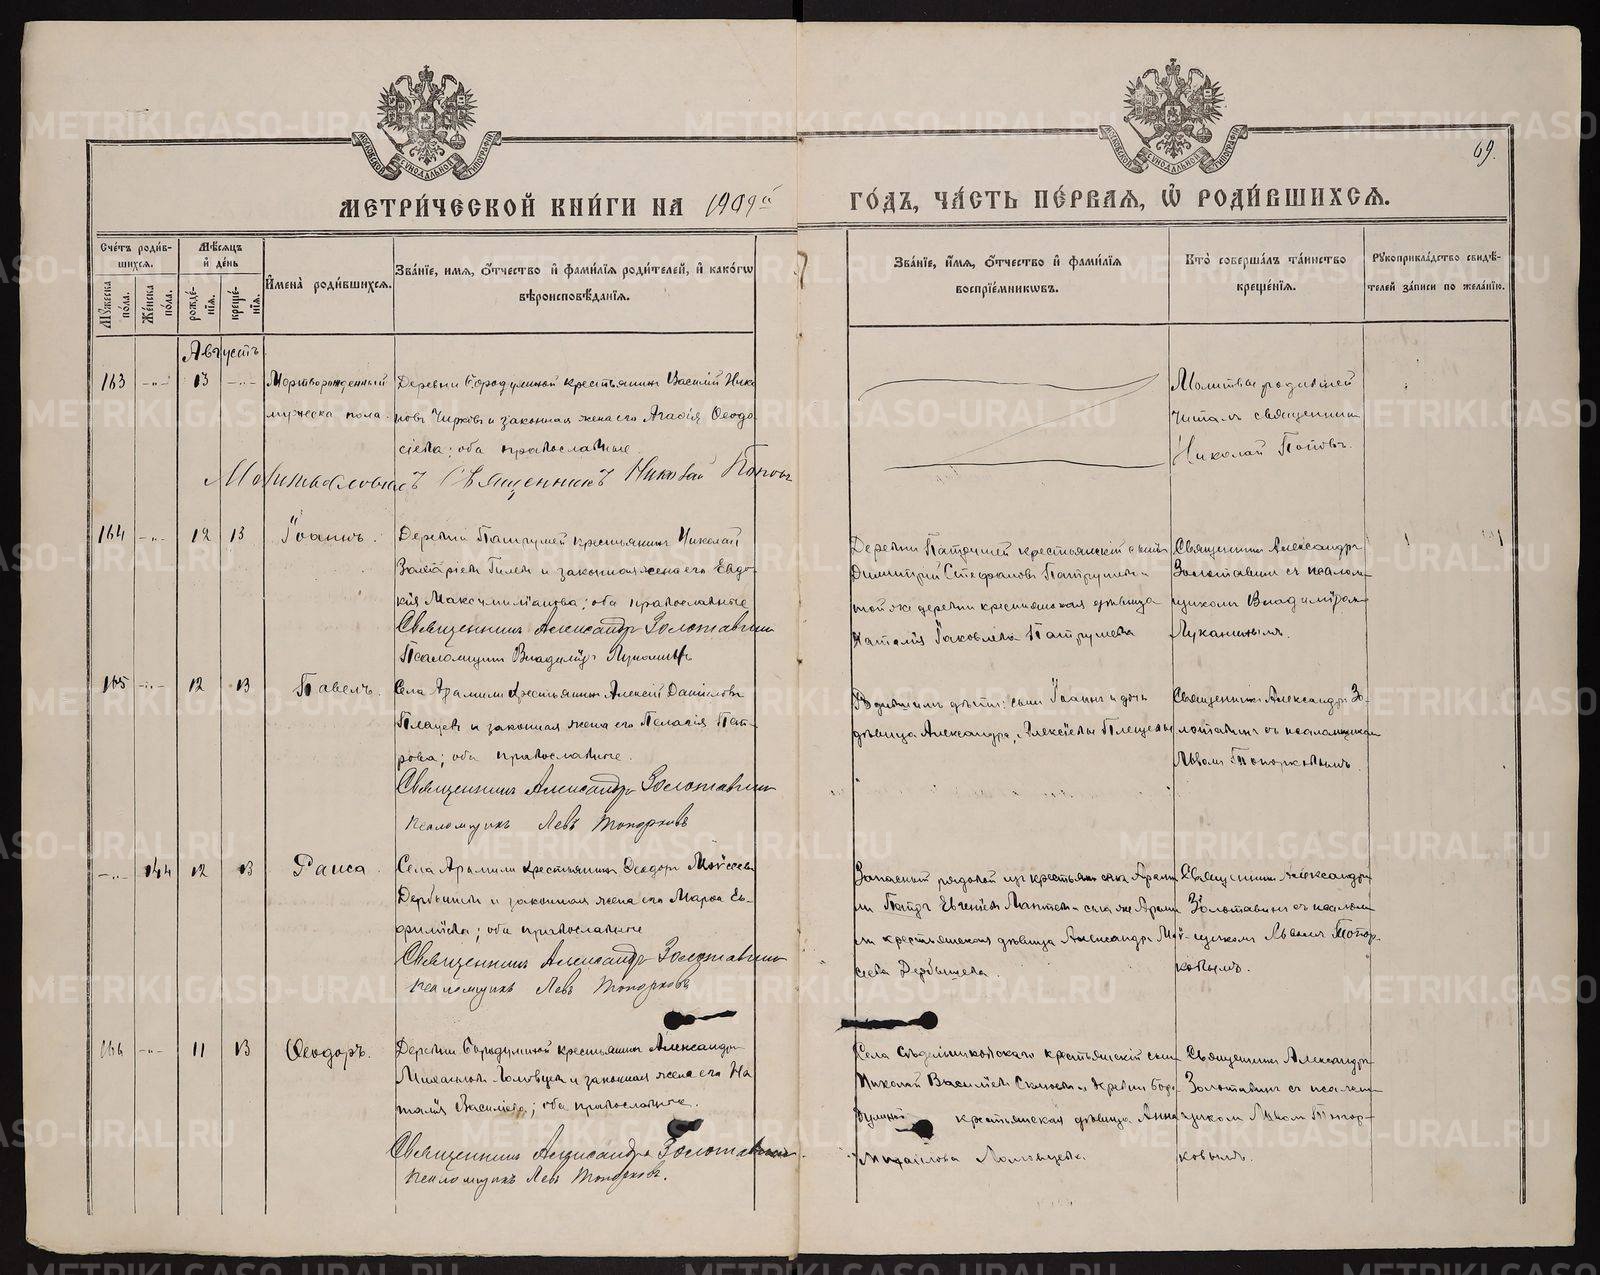 МОСКОВСКОЙ СѴНОДАЛЬНОЙ ТИПОГРАФІИ
МОСКОВСКОЙ СѴНОДАЛЬНОЙ ТИПОГРАФІИ
69.
МЕТРИ́ЧЕСКОЙ КНИ́ГИ НА 1909й ГО́ДЪ, ЧА́СТЬ ПЕ́РВАЯ, Ѡ҆ РОДИ́ВШИХСѦ.
Сче́тъ роди́в-шихсѧ.
Мꙋжеска по́ла.
Же́нска по́ла.
Мѣ́сѧцъ и҆ де́нь
рожде́-нїѧ.
креще́-нїѧ.
И҆мена̀ роди́вшихсѧ.
Зва́нїе, и҆́мѧ, ѻ҆́тчество и҆ фами́лїѧ роди́телей, и҆ како́гѡ
вѣроисповѣ́данїѧ.
Зва́нїе, и҆́мѧ, ѻ҆́тчество и҆ фами́лїѧ
воспрїе́мникѡвъ.
Кто̀ соверша́лъ та́инство
креще́нїѧ.
Рꙋкоприкла́дство свидѣ́-
телей за́писи по жела́нїю.
Августъ
163 -"- 13 -"-
Мертворожденный
мужеска пола.
Деревни Бородулиной крестьянинъ Василій Ника
новъ Чирковъ и законная жена его Агафія Ѳеодо
сіева; оба православные.
Молитвословилъ Священникъ Николай Поповъ
Молитвы родившей
читалъ священникъ
Николай Поповъ.
164 -"- 12 13
Іоаннъ.
Деревни Патрушей крестьянинъ Николай
Захаріевъ Гилевъ и законная жена его Евдо-
кія Максимиліанова; оба православные
Священникъ Александръ Золотавинъ
Псаломщикъ Владиміръ Луканинъ
Деревни крестьянскій сынъ
Димитрій Стефановъ Патрушевъ и
той же деревни крестьянская дѣвица
Наталія Іаковлева Патрушева
Священникъ Александръ
Золотавинъ съ псалом-
щикомъ Владиміромъ
Луканинымъ.
165 -"- 12 13
Павелъ.
Села Арамили крестьянинъ Алексій Даниловъ
и законная жена его Пелагія Пет-
рова; оба православные.
Священникъ Александръ Золотавинъ
Псаломщикъ Левъ Топорковъ
дѣти: сынъ Іоаннъ и дочь
дѣвица Александра, Алексіевы
Священникъ Александръ Зо-
лотавинъ съ псаломщикомъ
Львомъ Топорковымъ.
-"- 144 12 13
Раиса.
Села Арамили крестьянинъ Ѳеодоръ Мойсеевъ
Дербышевъ и законная жена его Марѳа Ев-
фиміева; оба православные
Священникъ Александръ Золотавинъ
Псаломщикъ Левъ Топорковъ
Запасный рядовой изъ крестьянъ села Арами
ли Петръ Евгеніевъ села же Арами
ли крестьянская дѣвица Александра Мой-
сеева Дербышева.
Священникъ Александръ
Золотавинъ съ псалом-
щикомъ Львомъ Топор-
ковымъ.
166 -"- 11 13
Ѳеодоръ.
Деревни Бородулиной крестьянинъ Александръ
Михаиловъ и законная жена его На
талія Василіева; оба православные.
Священникъ Александръ Золотавинъ
Псаломщикъ Левъ Топорковъ.
Села крестьянскій сынъ
Николай Василіевъ и деревни Боро-
дулиной крестьянская дѣвица Анна
Михайлова
Священникъ Александръ
Золотавинъ съ псалом-
щикомъ Львомъ Топор-
ковымъ.